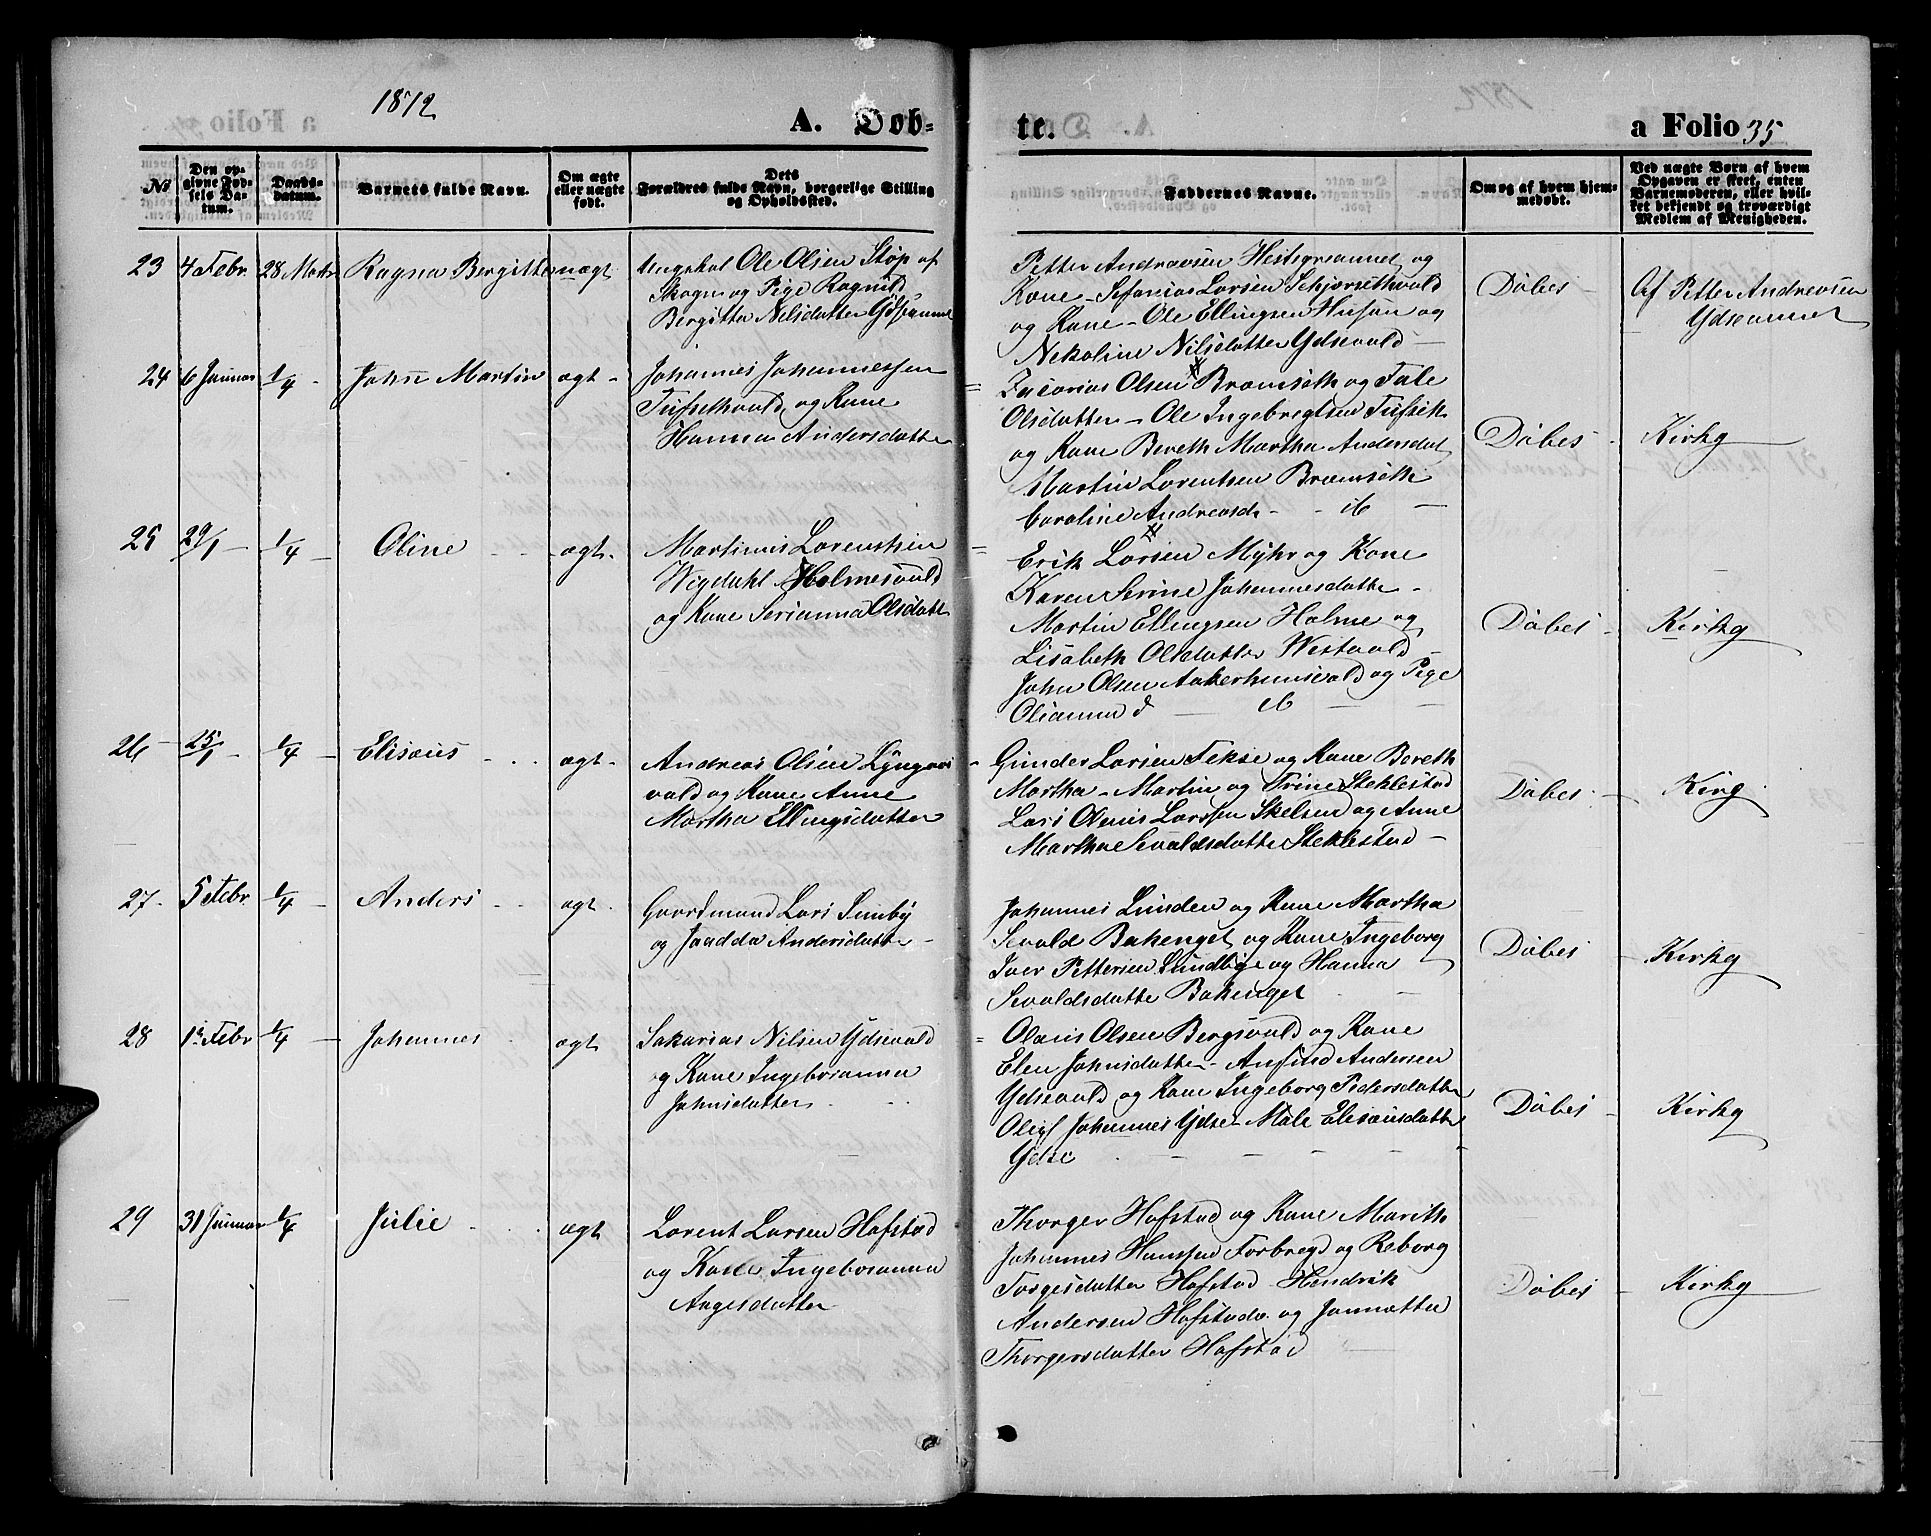 1872
A. Døb-
te.
a Folio 35
No
Den op-
givne Fød-
sels Da-
tum.
Daabs-
datum.
Barnets fulde Navn.
Om ægte
eller uægte
født.
Dets
Forældres fulde Navn, borgerlige Stilling
og Opholdssted.
Faddernes Navne.
Om og af hvem hjem-
medøbt.
Ved uægte Børn af hvem
Opgaven er skeet, enten
Barnemoderen, eller hvil-
ket bekjendt og troværdigt
Medlem af Menigheden.
23 4 Febr. 28 Marts Ragna Bergitte uægt
Ungskal Ole Olsen Støp af
Skogn og Pige Ragnild
Bergitta Nilsdatter Ydseaunet
Petter Andreasen Heitgreaunet og
Kone - Sefanias Larsen Schjørsethvald
og Kone - Ole Ellingsen Husan og
Nekoline Nilsdatter Ydsevald -
Døbes
Af Petter Andreasen
Ydseaunet
24 6 Januar 1/4 - John Martin ægt -
Johannes Johannessen
Tufsethvald og Kone
Hanna Andersdatter
= Zacarias Olsen Bramseth og Tale
Olsdatter - Ole Ingebregtsen Tufseth
og Kone Bereth Martha Andersdat
Martin Lorentsen Bramseth
Caroline Andreasd - - ib -
Døbes - Kirkg
25 29/1 - 1/4 - Oline - - ægt -
Martinus Lorentsen
Wegdahl Holmesvald
og Kone Serianna Olsdatt
= Erik Larsen Myhr og Kone
Karen Serine Johannesdatte -
Martin Ellingsen Holme og
Lisabeth Olsdatter Westvald -
John Olsen Aakerhusvald og Pige
Olianna d - ib - -
Døbes - Kirkg
26 - 25/1 - 1/4 - Elisæus - . . ægt -
Andreas Olsen Lyngaas
vald og Kone Anne
Martha Ellingsdatter
- Gunder Larsen Fekse og Kone Bereth
Martha - Martin og Trine Steklestad
Lars Olenis Larssen Skelsen og Anne
Martha Sevaldsdatte Steklestad -
Døbes - Kirg
27 - 5 Febr 1/4 - Anders - - ægt -
Gaardmand Lars Sunby
og Jaadda Andersdatte -
Johannes Lunden og Kone Martha
Sevald Bakenget og Kone Ingeborg
Iver Pettersen Sundbye og Hanna
Sevaldsdatte Bakenget . -
Døbes - Kirkg
28 1ste Febr 1/4 - Johannes - ægt
Sakarias Nilsen Ydsevald
og Kone Ingeboranna
Johnsdatter - - -
= Olaus Olsen Bergsvald og Kone
Elen Johnsdatte - Anfind Andersen
Ydsevald og Kone Ingeborg Pedersdatte
Oluf Johannes Ydse - Male Elesæusdatte
Ydse - - - - -
Døbes - Kirkg
29 31 Januar 1/4 Julie - - - ægt
Lorent Larsen Hofstad
og Kone Ingeboranna
Aagesdatter
Thorger Hofstad og Kone Marith
Johannes Hanssen Forbregd og Reborg
Torgersdatter Hofstad - Hendrik
Andersen Hofstadv. og Jannætta
Thorgersdatter Hofstad
Døbes - Kirkg